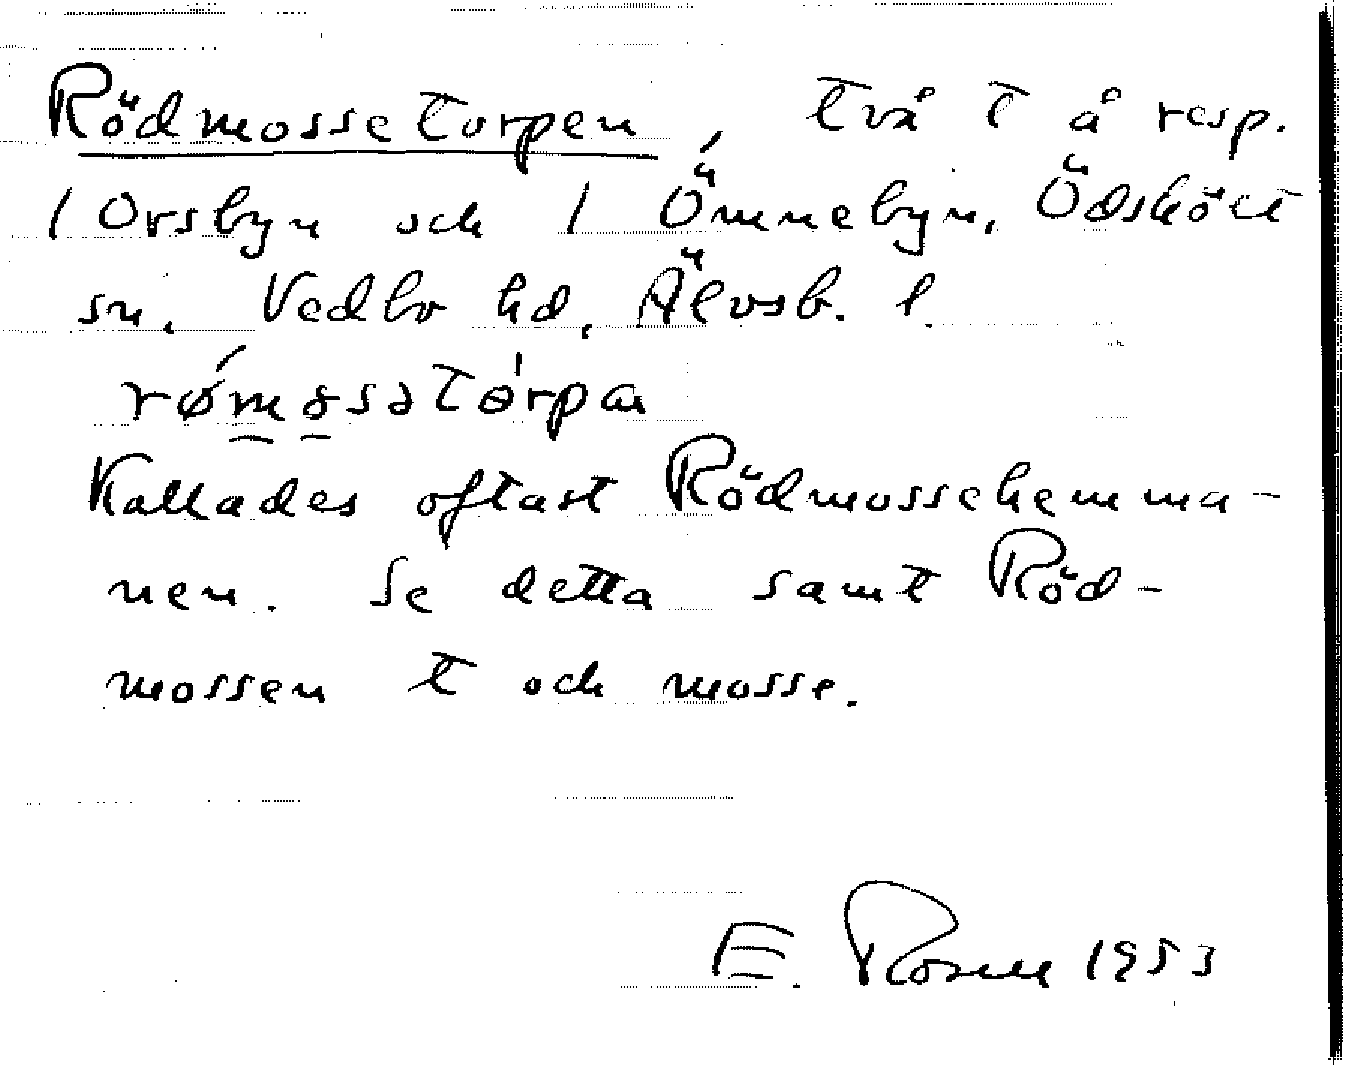 Rödmossetorpen, två t å resp.
1 Orsbyn och 1 Ömmebyn, Ödskölt
sn, Vedbo hd, Älvsb. l.
rømosətòrpa
Kallades oftast Rödmossehemma-
nen. Se detta samt Röd-
mossen t och mosse.
E. Rosell 1953